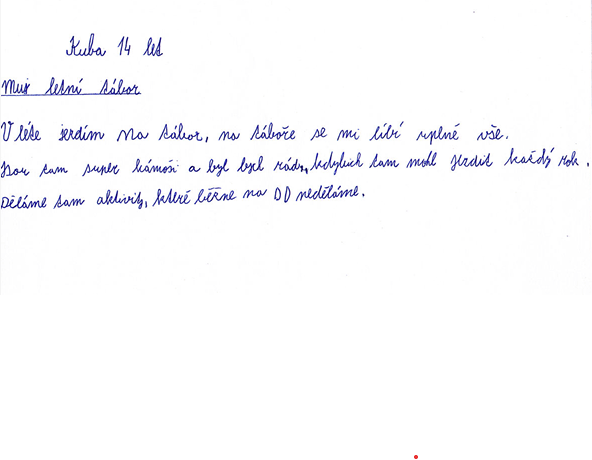 Kuba 14 let
Muj letní tábor
V léte jezdím na tábor, na táboře se mi líbí uplně vše.
Jsou tam super kámoši a byl bych rády, kdybich tam mohl jezdit každý rok.
Děláme tam aktivity, které běžne na DD neděláme.